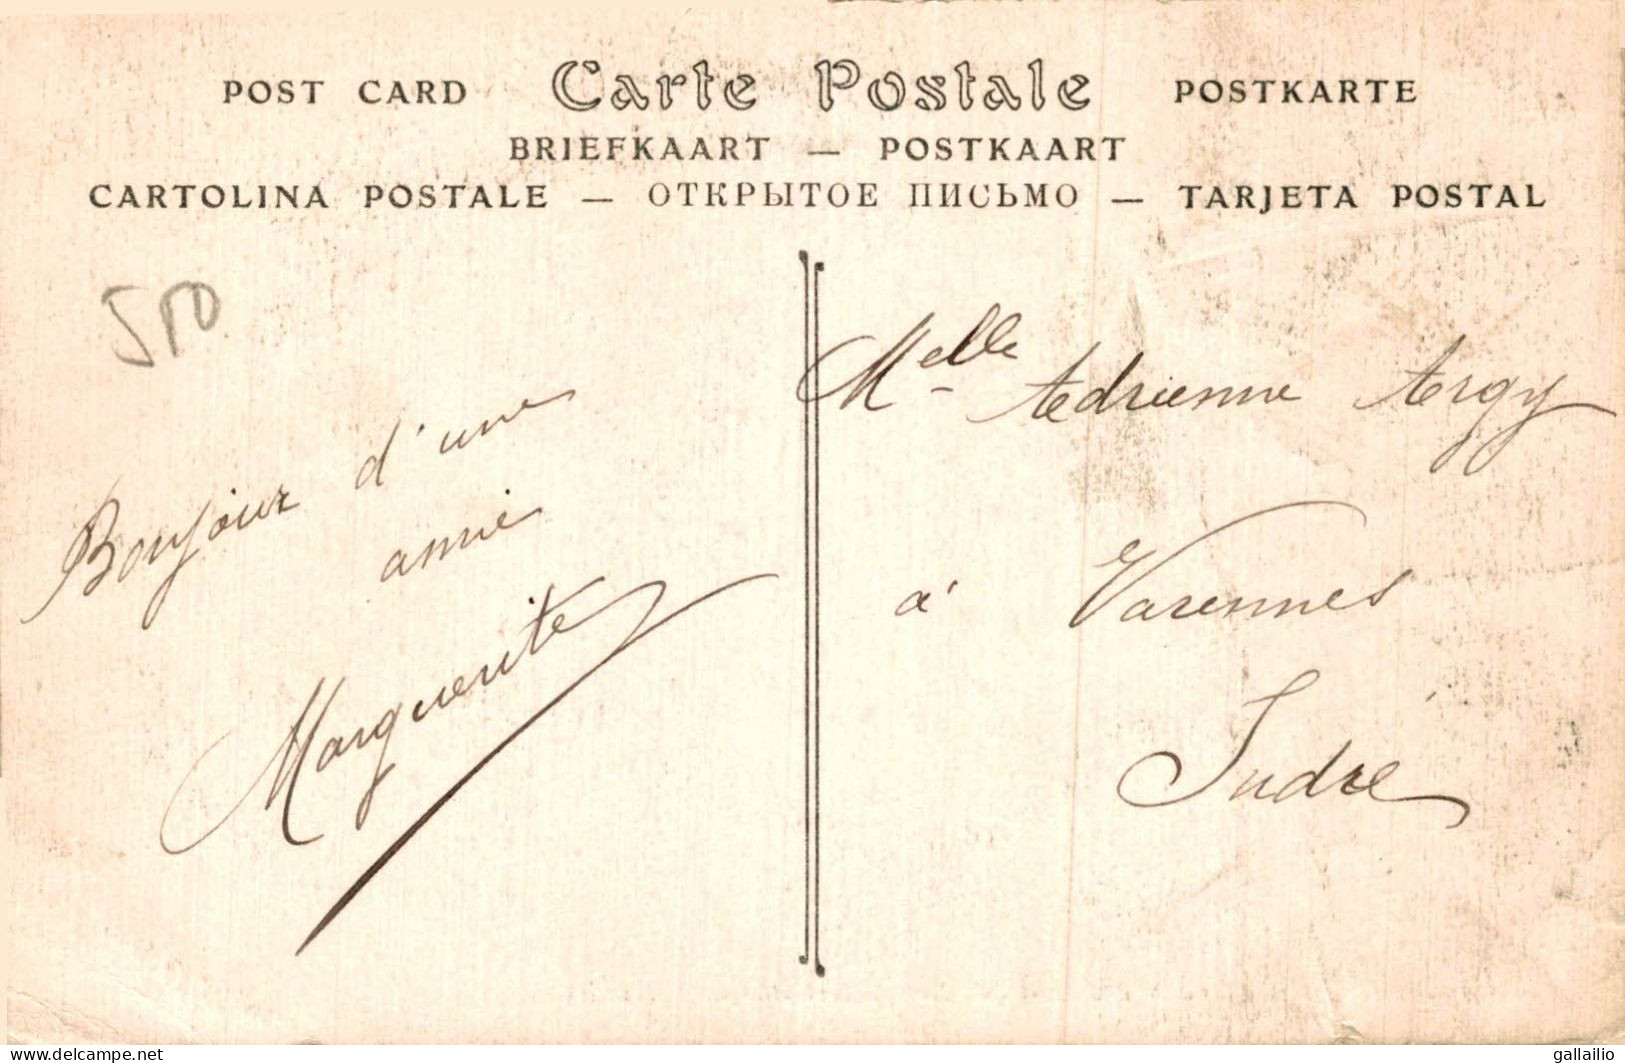 POST CARD Carte Postale POSTKARTE
BRIEFKAART — POSTKAART
CARTOLINA POSTALE — ОТКРЫТОЕ ПИСЬМО — TARJETA POSTAL
Bonjour d'une
amie
Marguerite
Melle Adrienne Argy
à Varennes
Indre
www.delcampe.net
gallailio